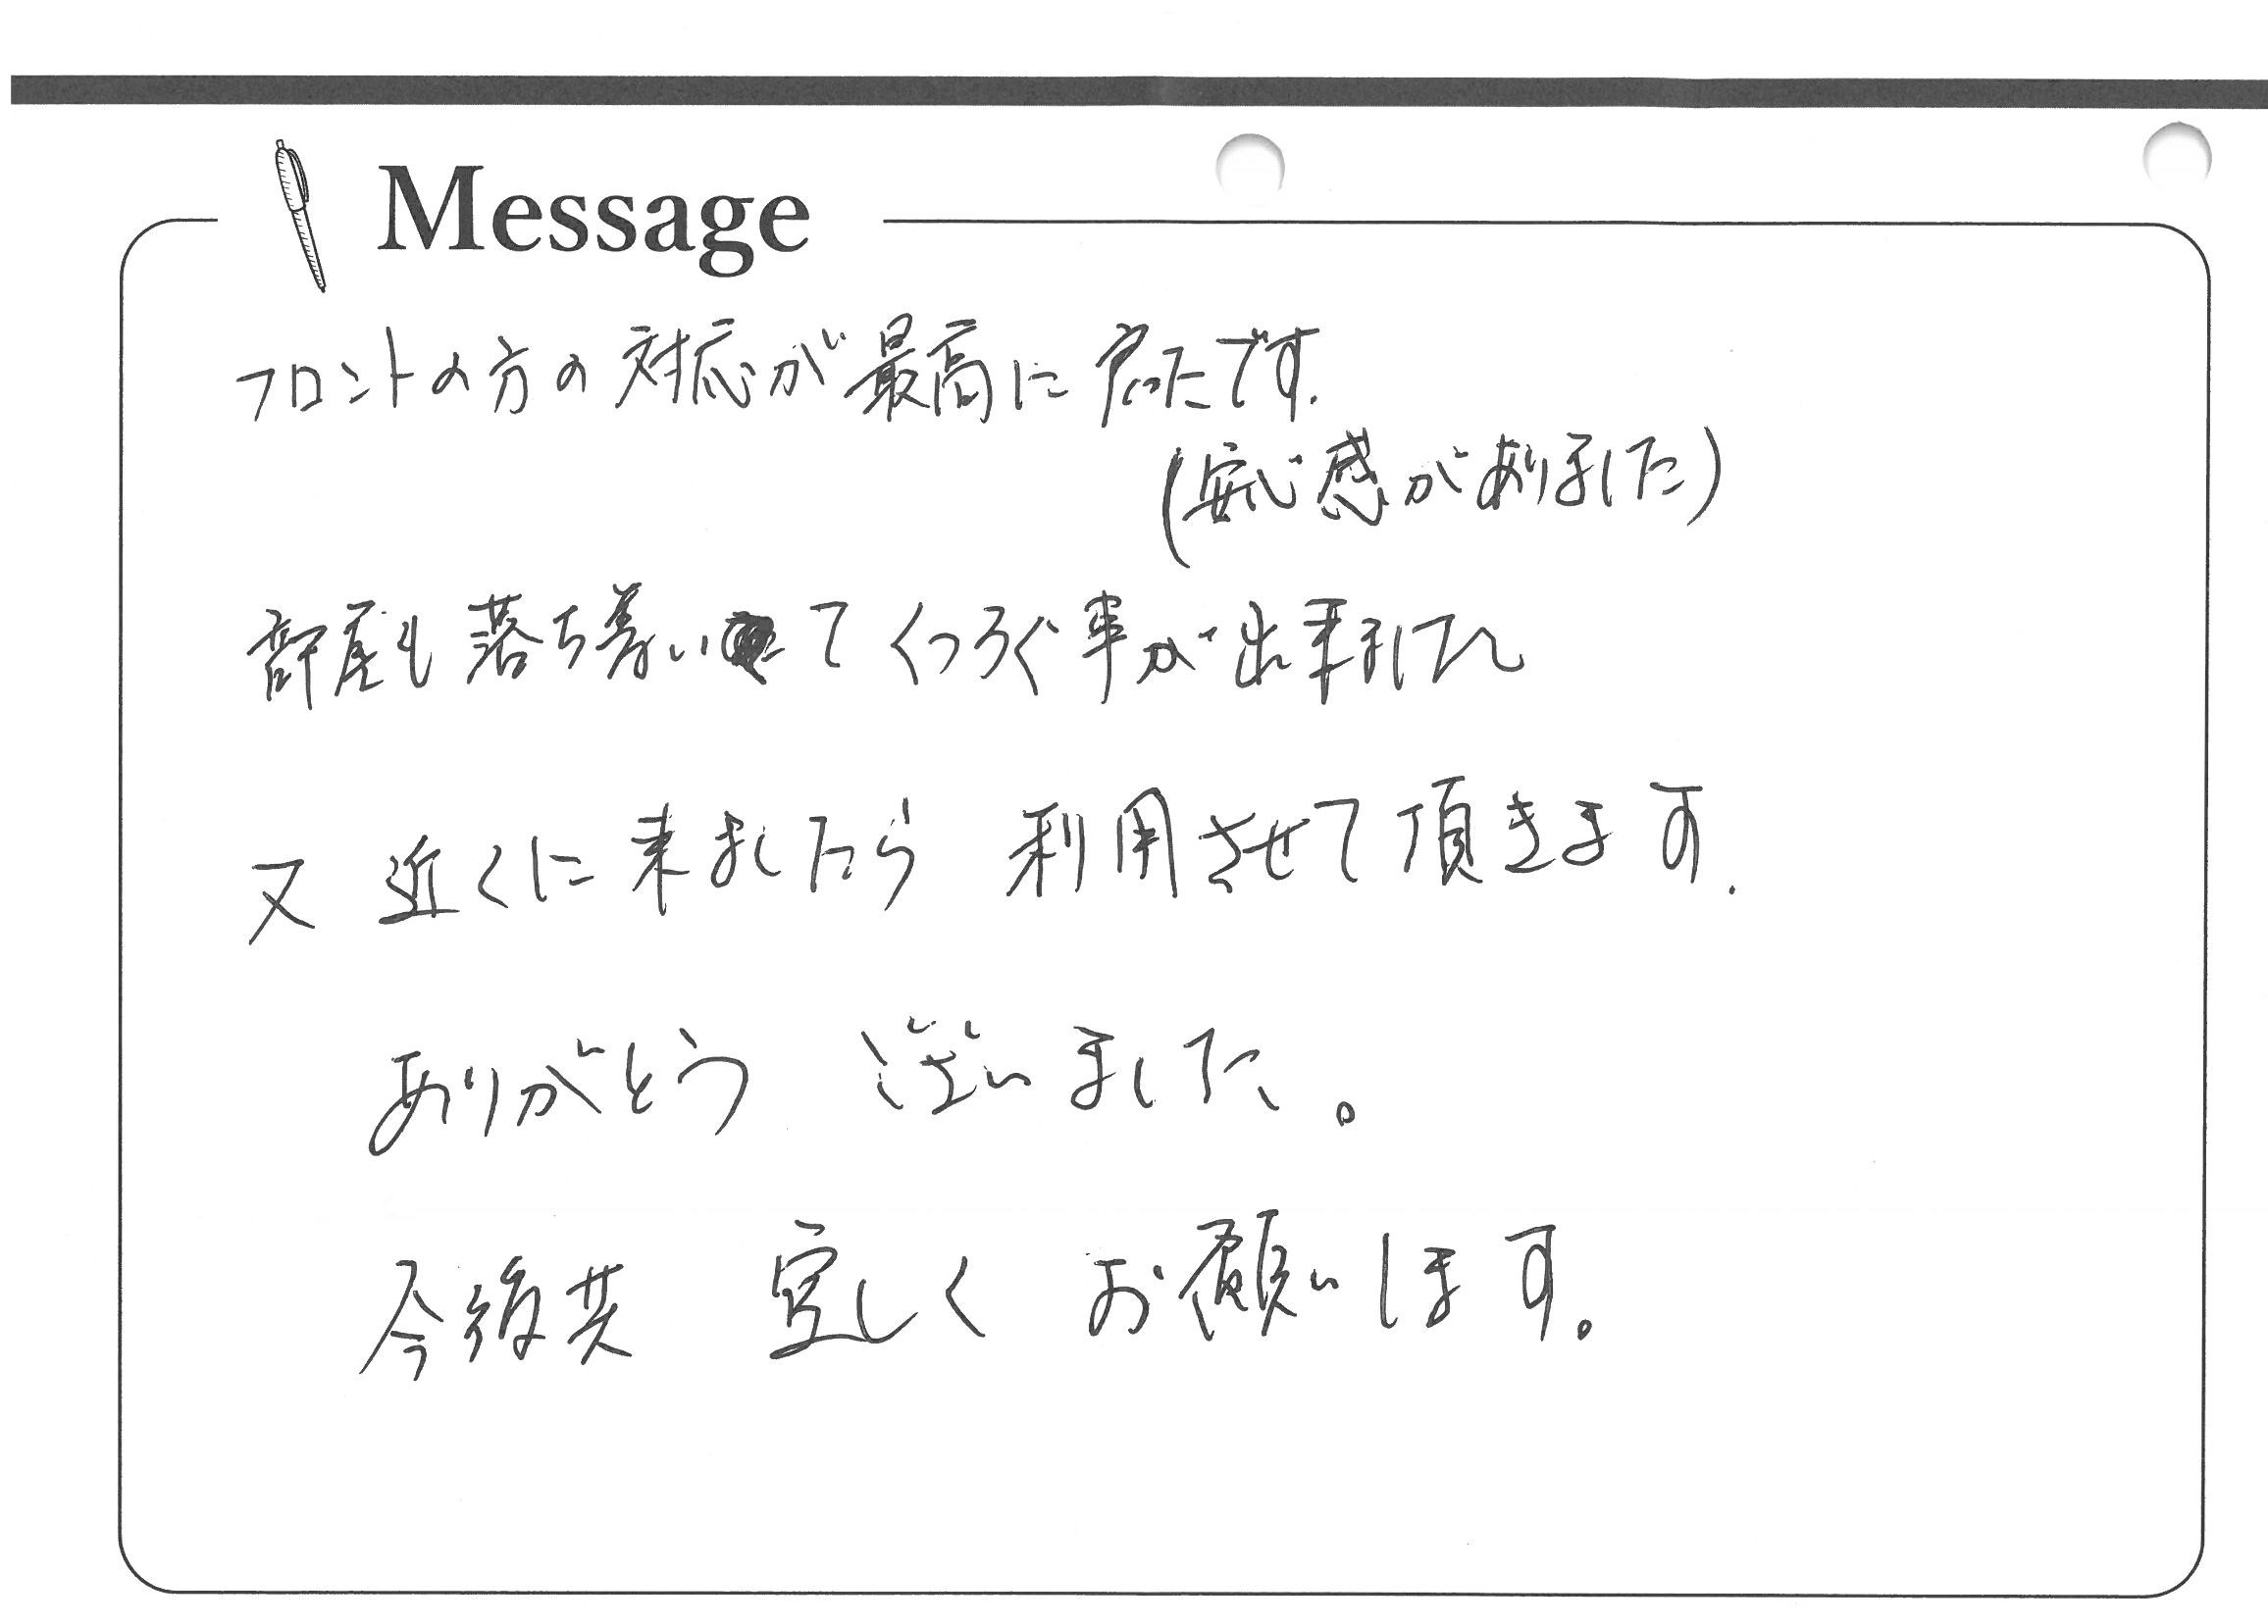 Message
フロントの方の対応が最高に良かったです.
(安心感がありました)
部屋も落ち着いてくつろぐ事が出来ました
又 近くに来ましたら 利用させて頂きます.
ありがとう ございました。
今後共 宜しく お願いします。